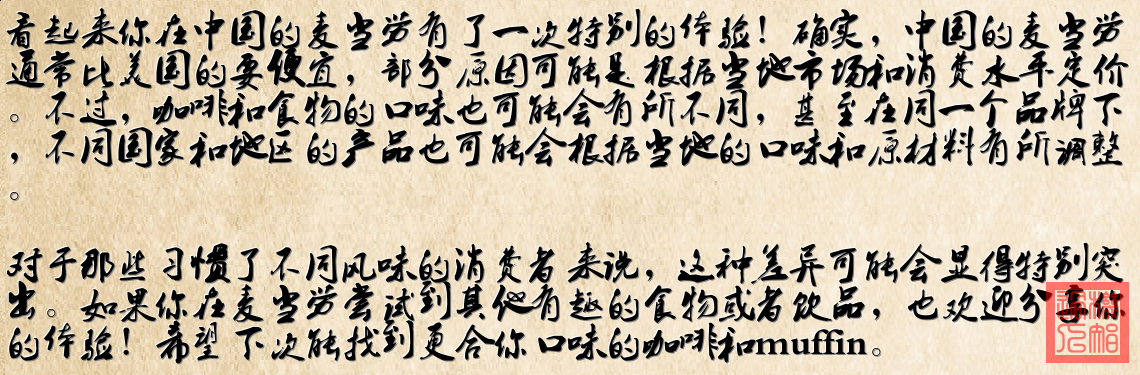 看起来你在中国的麦当劳有了一次特别的体验！确实，中国的麦当劳
通常比美国的要便宜，部分原因可能是根据当地市场和消费水平定价
。不过，咖啡和食物的口味也可能会有所不同，甚至在同一个品牌下
，不同国家和地区的产品也可能会根据当地的口味和原材料有所调整
。
对于那些习惯了不同风味的消费者来说，这种差异可能会显得特别突
出。如果你在麦当劳尝试到其他有趣的食物或者饮品，也欢迎分享你
的体验！希望下次能找到更合你口味的咖啡和muffin。